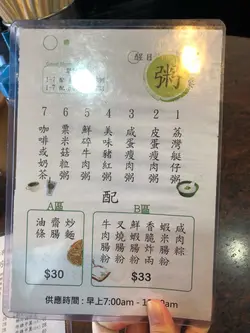 醒目
粥
1 荔灣艇仔粥
2 皮蛋瘦肉粥
3 咸蛋瘦肉粥
4 美味豬紅粥
5 鮮碎牛肉粥
6 粟米菇粒粥
7 咖啡或奶茶
配
A區
炒麵
齋腸
油條
$30
B區
咸肉粽
蝦米腸粉
香脆炸兩
鮮蝦腸粉
叉燒腸粉
牛肉腸粉
$33
供應時間:早上7:00am -